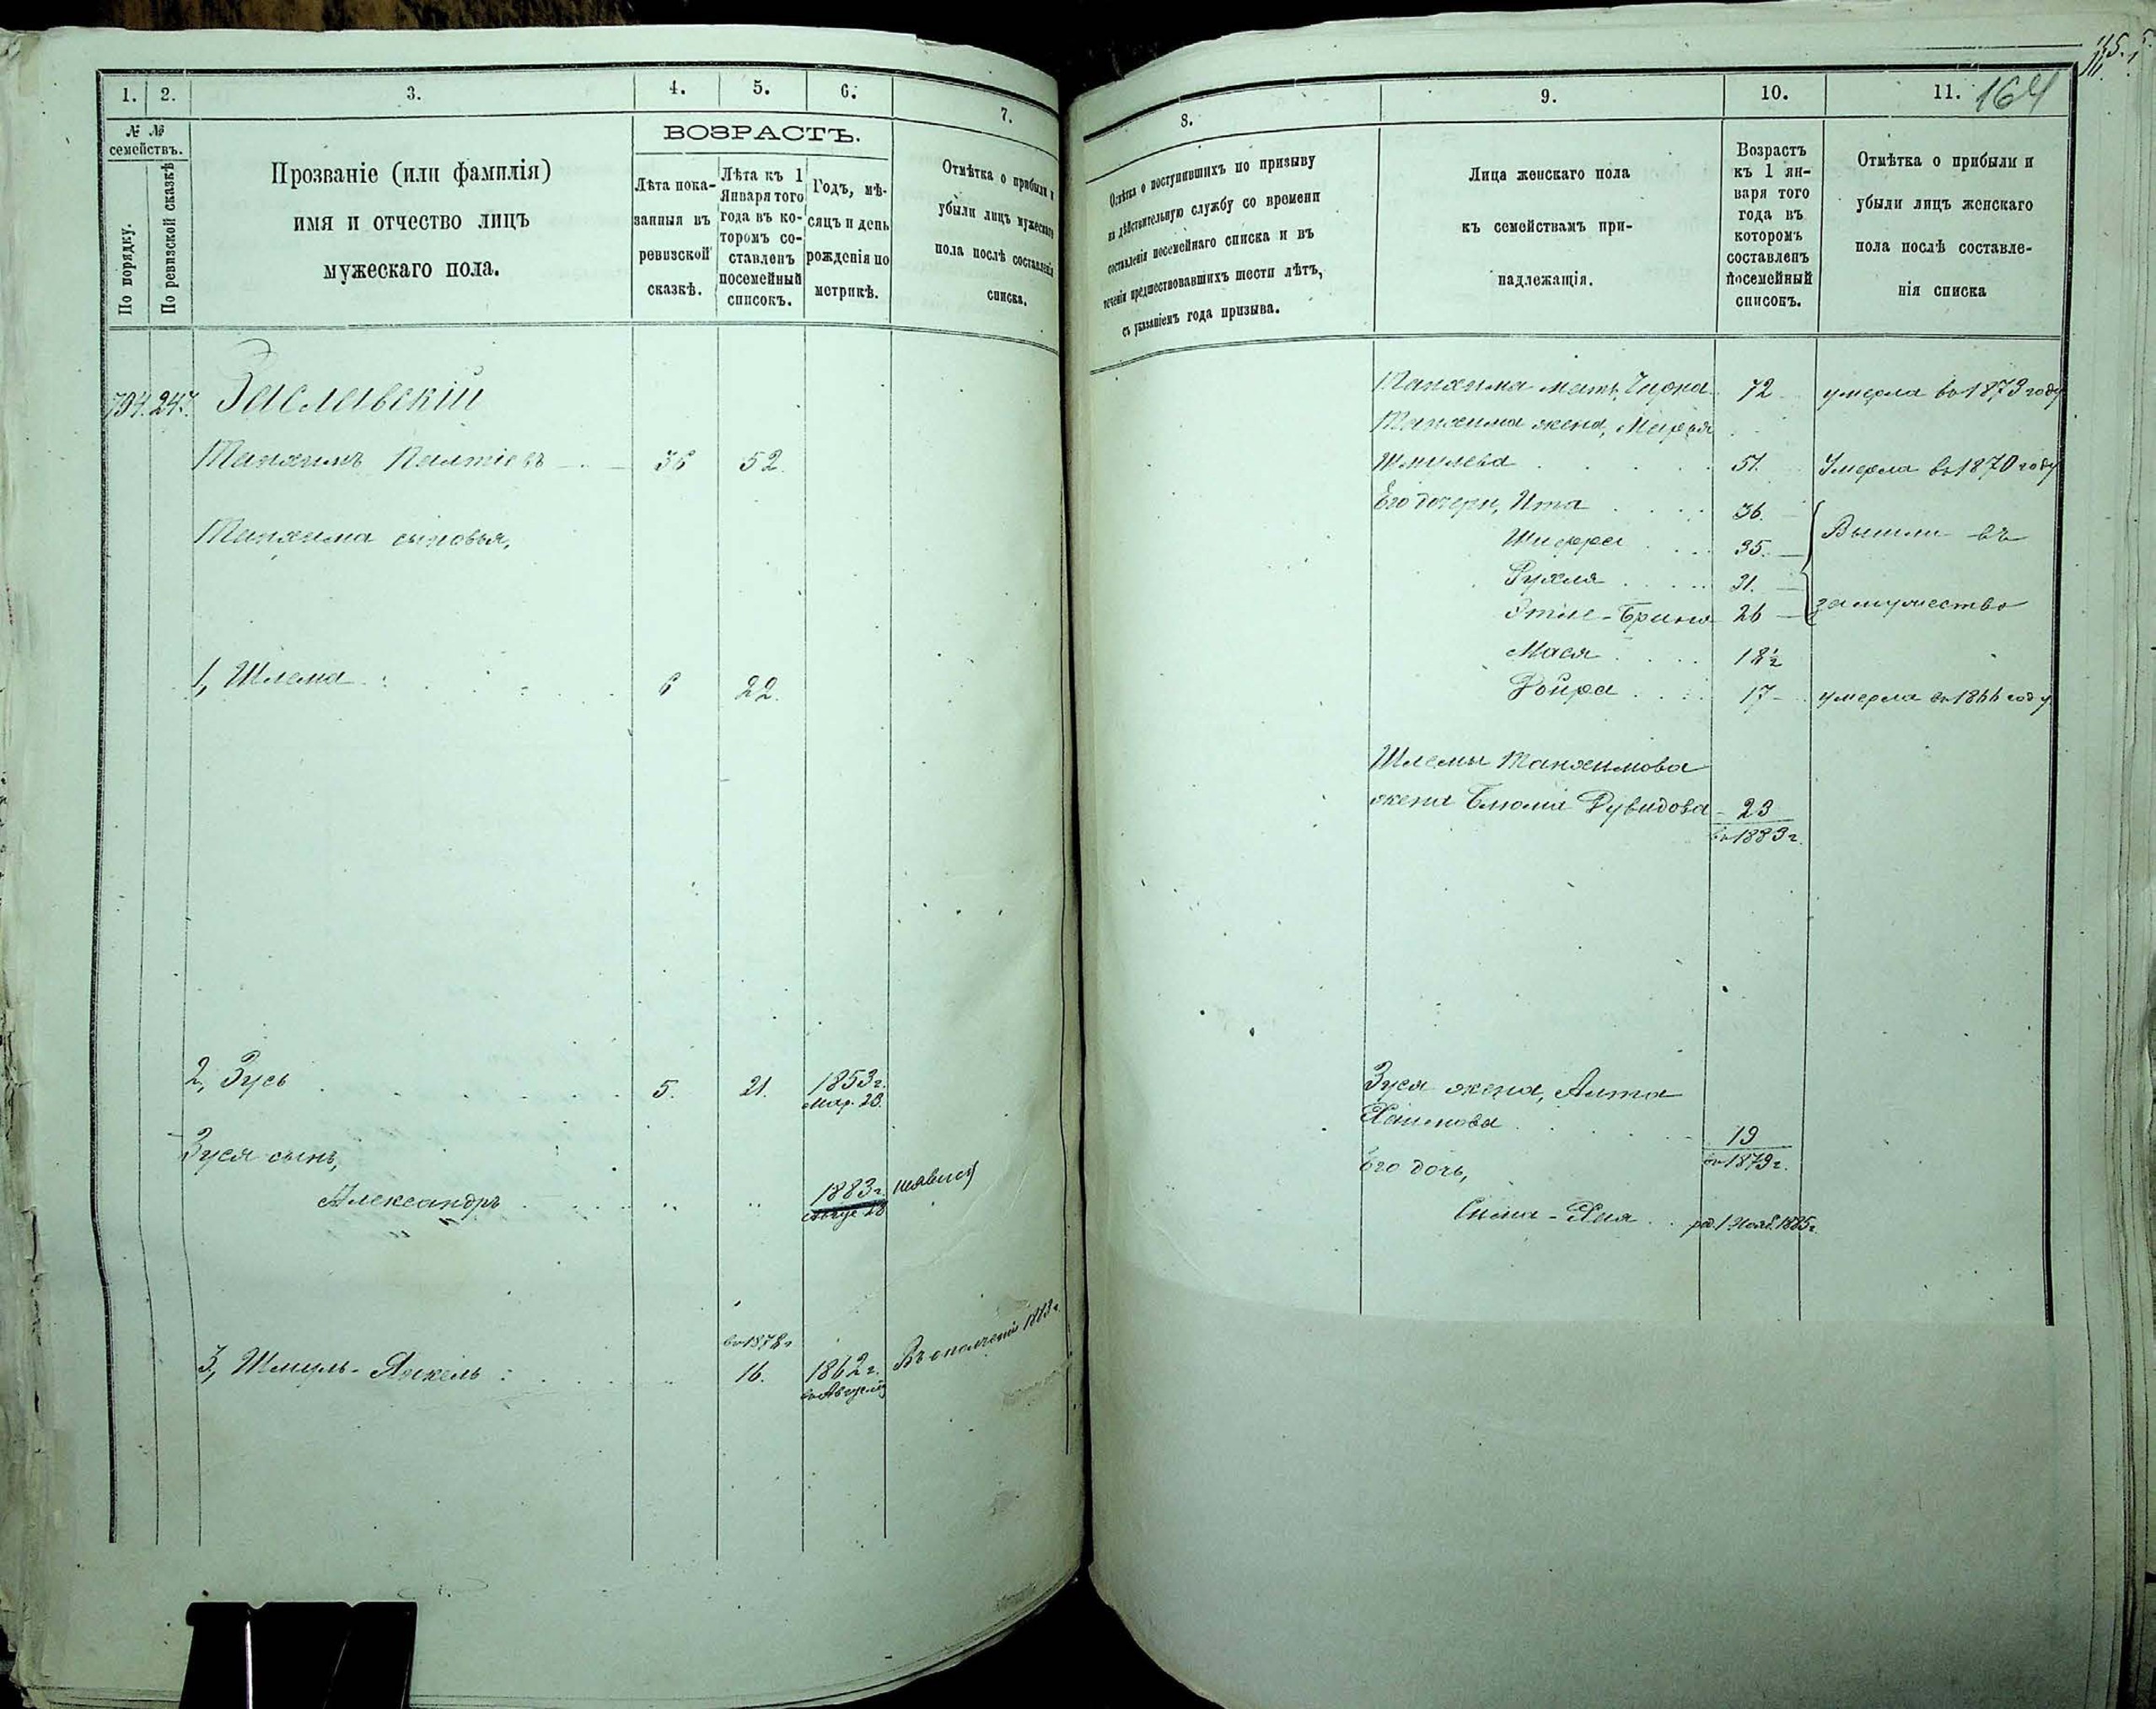 115.
164
1. 2. 3. 4. 5. 6. 7.
№ №
семействъ.
По порядку.
По ревизской сказкѣ
Прозваніе (или фамилія)
имя и отчество лицъ
мужескаго пола.
ВОЗРАСТЪ.
Лѣта пока-
занныя въ
ревизской
сказкѣ.
Лѣта къ 1
Января того
года въ ко-
торомъ со-
ставленъ
посемейный
списокъ.
Годъ, мѣ-
сяцъ и день
рожденія по
метрикѣ.
Отмѣтка о прибыли и
убыли лицъ мужескаго
пола послѣ составленія
списка.
794. 247. Заславскій
Танхимъ Палтіевъ 36 52.
Танхима сыновья,
1, Шлема 6 22.
2, Зусь 5. 21. 1853 г.
Мар. 23.
Зуся сынъ,
Александръ 1883 г.
28
въ 1878 г
3, Шмуль-Янкель 16. 1862 г. Въ ополченіи 1883 г.
8. 9. 10. 11.
Отмѣтка о поступившихъ по призыву
на дѣйствительную службу со времени
составленія посемейнаго списка и въ
теченіи предшествовавшихъ шести лѣтъ,
съ указаніемъ года призыва.
Лица женскаго пола
къ семействамъ при-
надлежащія.
Возрастъ
къ 1 ян-
варя того
года въ
которомъ
составленъ
посемейный
списокъ.
Отмѣтка о прибыли и
убыли лицъ женскаго
пола послѣ составле-
нія списка
Танхима мать, 72 умерла въ 1873 году
Танхима жена,
Шмулева 51. Умерла въ 1870 году
Его дочери, Ита 36.
Шифра 35. Вышли въ
Рухля 31.
Этле-Брина 26 замужество
Мася 18 1/2
Двойра 17 умерла въ 1866 году
Шлемы Танхимова
жена Блюма Дувидова 23
въ 1883 г.
Зуся жена, Алта
Хаимова 19
въ 1879 г.
Его дочь,
Сима-Хая род. 1 Нояб. 1885 г.